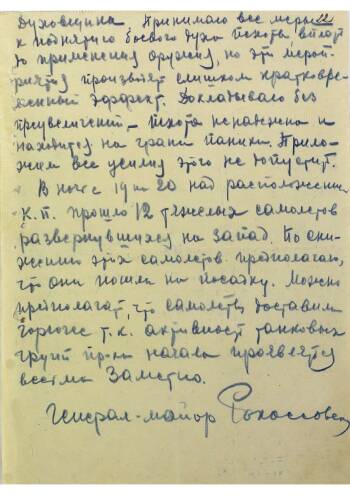 Духовщина. Принимаю все меры 22
к поднятию боевого духа пехоты, вплоть
до применения оружия, но эти меро-
приятия производят слишком кратковре-
менный эффект. Докладываю без
преувеличений – пехота ненадежна и
находится на грани паники. Прило-
жим все усилия этого не допустить.
В ночь с 19 на 20 над расположением
К.П. прошло 12 тяжелых самолетов
развернувшихся на запад. По сни-
жению этих самолетов предполагаю,
что они пошли на посадку. Можно
предполагать, что самолеты доставили
горючее т.к. активность танковых
групп пр-ка начала проявляться
весьма заметно.
Генерал-майор Рокоссовский